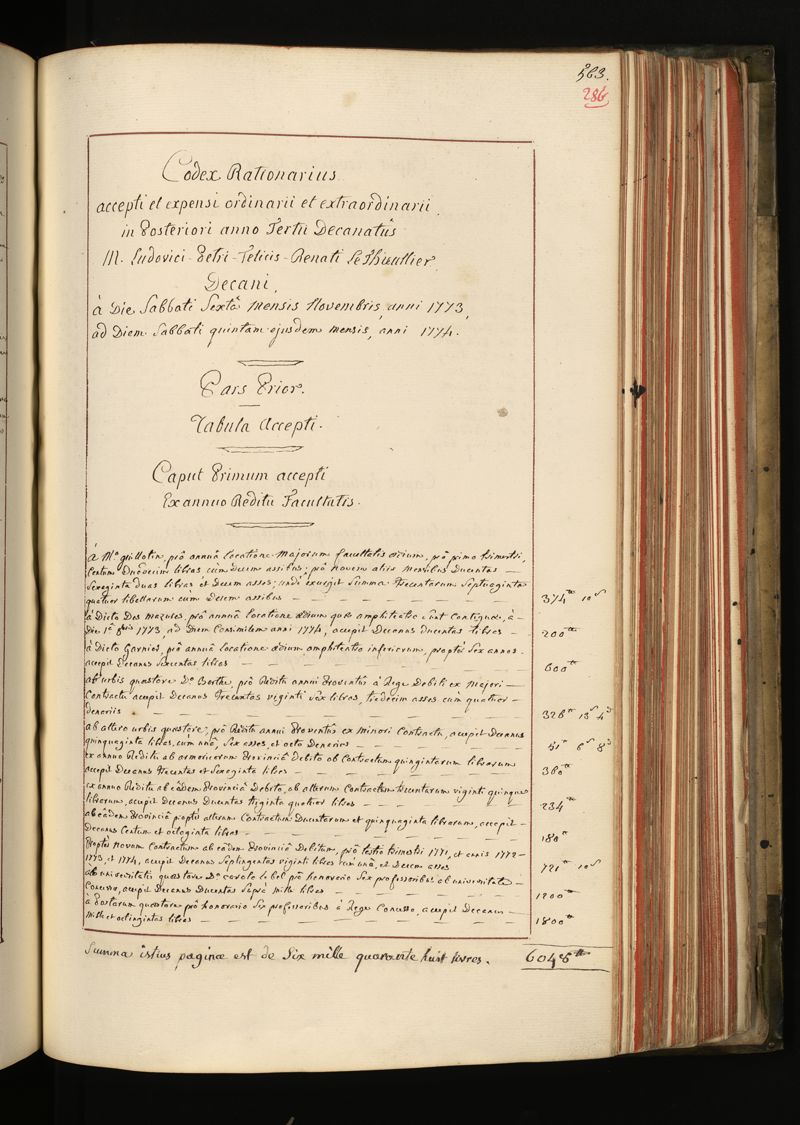 563.
286
Codex Rationarius
accepti et expensi ordinarii et extraordinarii
in Posteriori anno Tertii Decanatûs
M. Ludovici-Petri-Felicis-Renati Le Thieullier
Decani,
à Die Sabbati Sextâ mensis Novembris anni 1773,
ad Diem Sabbati quintam ejusdem mensis, anni 1774.
Pars Prior.
Tabula Accepti.
Caput Primum accepti
Ex annuo Reditu Facultatis.
à Mo. guillotin, prô annuâ Locatione majorum facultatis ædium, prô primo trimestri,
Centum Duodecim libras cùm decem assibus; prô novem aliis mensibus Ducentas
Sexaginta duas libras et Decem asses; undè exurgit Summa Trecentarum Septuaginta
quatuor libellarum cùm Decem assibus 374tt 10s
à Dicto Des mazures, prô annuâ locatione ædium quæ amphiteatro sunt Contiguæ, à
Die 1a 1773, ad Diem Consimilem anni 1774, accepit Decanus ducentas libras 200tt
à dicto Garnier, prô annuâ locatione ædium amphiteatro inferiorum, propter Sex annos
accepit Decanus Sexcentas libras 600tt
ab urbis quæstore Do. Berthe, prô Reditu annui proventûs à Rege Debiti ex Majori
Contractu accepit Decanus Trecentas viginti sex libras, tredecim asses cùm quatuor
denariis 326tt 13s 4d
ab altero urbis quæstore, prô Reditu annui proventûs ex minori Contractu, accepit Decanus
quinquaginta libras, cùm unâ, Sex asses, et octo Denarios 51tt 6s 8d
ex annuo Reditu ab armoricorum provinciâ Debito ob Contractum quingentarum librarum
accepit Decanus Trecentas et Sexaginta libras 360tt
ex annuo Reditu ab eâdem Provinciâ Debito, ob alterum Contractum trecentarum viginti quinque
librarum, accepit Decanus Ducentas triginta quatuor libras 234tt
ab eâdem Provinciâ propter alterum Contractum Ducentarum et quinquaginta librarum, accepit
Decanus Centum et octoginta libras 180tt
Propter novum Contractum ab eâdem Provinciâ Debitum, prô trimestri 1771, et annis 1772
1773, et 1774, accepit Decanus Septingentas viginti libras cum unâ, et Decem asses 721tt 10s
ab universitatis quæstore Do. carolo le bel prô honorario Sex professoribus ab universitate
Concesso, accepit Decanus Ducentas Suprà mille libras 1200tt
à postarum quæstore prô honorario Sex professoribus à Rege Concesso, accepit Decanus
mille et octingintas libras 1800tt
Summa istius paginæ est de Six mille quarante huit livres. 6048tt